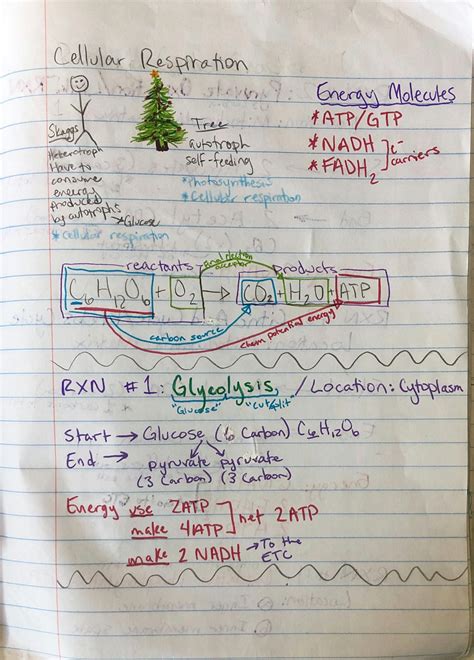 Cellular Respiration
Energy Molecules
*ATP/GTP
*NADH
*FADH2
e- carriers
Skaggs
Heterotroph
Have to
consume
energy
produced
by autotrophs
*Glucose
*Cellular respiration
Tree
autotroph
self-feeding
*Photosynthesis
*Cellular respiration
reactants
final electron
acceptor
products
C6H12O6 + O2 → CO2 + H2O + ATP
carbon source
chem potential energy
RXN #1: Glycolysis / Location: Cytoplasm
"Glucose" "Cut/split"
Start → Glucose (6 Carbon) C6H12O6
End → pyruvate pyruvate
(3 Carbon) (3 Carbon)
Energy use 2ATP
make 4ATP
net 2ATP
make 2 NADH → To the
ETC